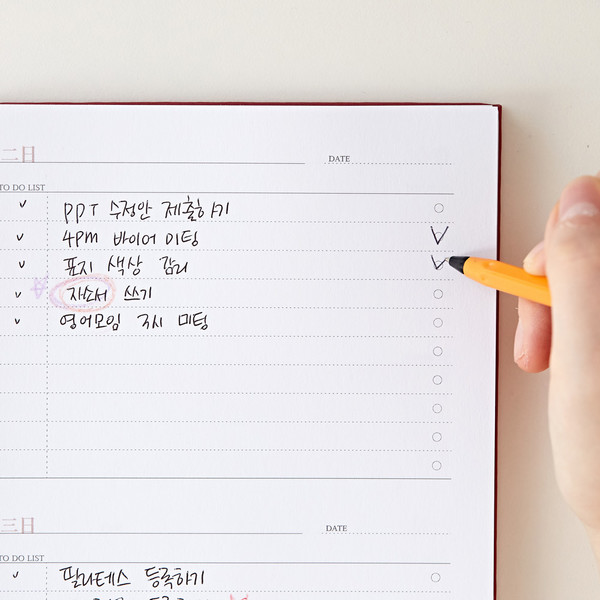 二日
DATE
TO DO LIST
PPT 수정안 제출하기
4PM 바이어 미팅
표지 색상 감리
자소서 쓰기
영어모임 3시 미팅
三日
DATE
TO DO LIST
필라테스 등록하기